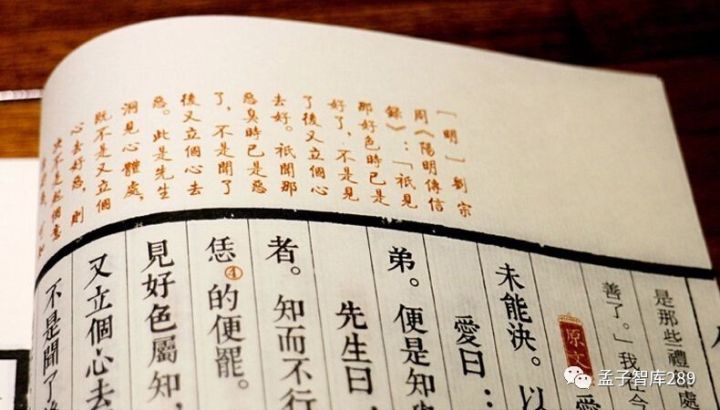 〔明〕劉宗
周《陽明傳信
錄》：「祇見
那好色時已是
好了，不是見
了後又立個心
去好。祇聞那
惡臭時已是惡
了，不是聞了
後又立個心去
惡。此是先生
洞見心體處，
既不是又立個
心去好惡，則
決不是起個意
是那些禮處
善了。」我今
原文 愛
未能決。以
愛曰：
弟。便是知
先生曰
者。知而不行
恁④的便罷。
見好色屬知，
又立個心去
不是聞了後
孟子智库289